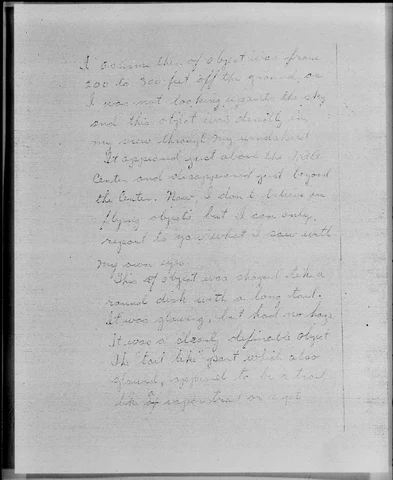 I assume the of object was from
200 to 300 feet off the ground, as
I was not looking upwards the sky
and this object was directly in
my view through my windshield
It appeared just above the
Center and disappeared just beyond
the Center. Now, I don't believe in
flying objects but I can only
report to you what I saw with
my own eyes.
This of object was shaped like a
round disk with a long tail.
It was glowing, but had no haze
It was a clearly definable object
The "tail like" part which also
glowed, appeared to be a trail
like vapor trail on a jet